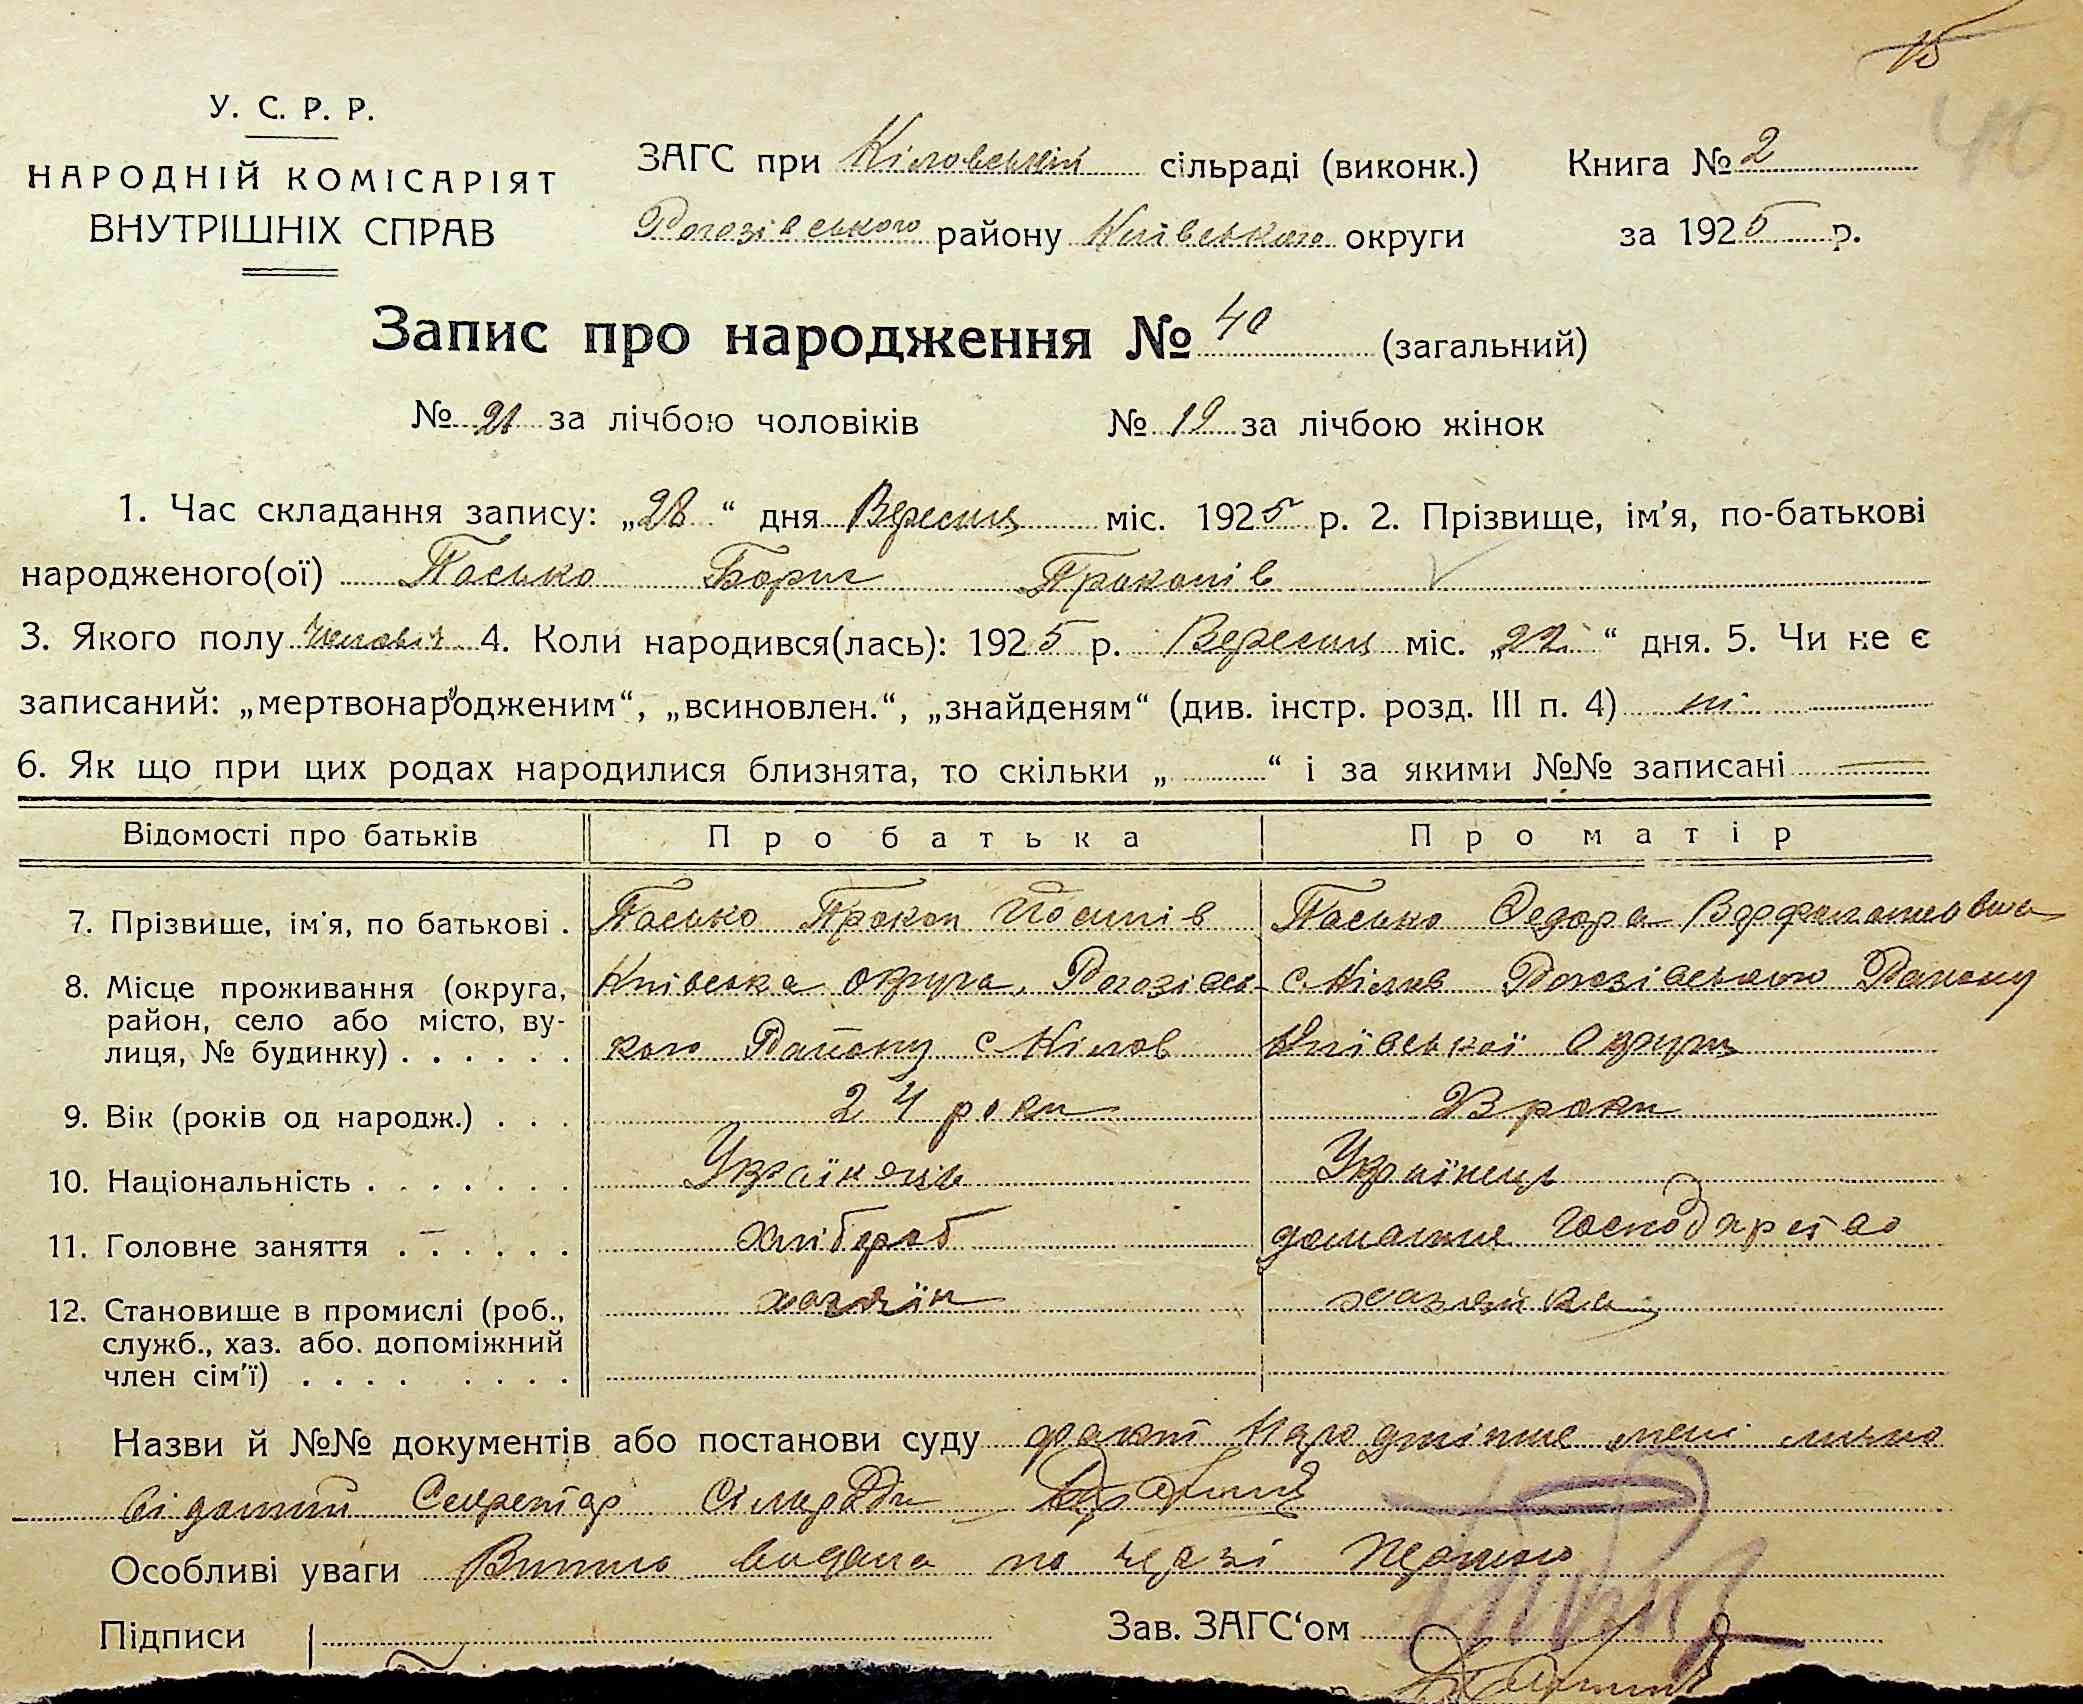 15
40
У. С. Р. Р.
НАРОДНІЙ КОМІСАРІЯТ
ВНУТРІШНІХ СПРАВ
ЗАГС при Кіловській сільраді (виконк.) Книга № 2
Рогозівського району Київського округи за 1925 р.
Запис про народження № 40 (загальний)
№ 21 за лічбою чоловіків № 19 за лічбою жінок
1. Час складання запису: „28“ дня Вересня міс. 1925 р. 2. Прізвище, ім'я, по-батькові
народженого(ої) Пасько Борис Прокопів
3. Якого полу чоловіч 4. Коли народився(лась): 1925 р. Вересня міс. „22“ дня. 5. Чи не є
записаний: „мертвонародженим“, „всиновлен.“, „знайденям“ (див. інстр. розд. III п. 4) ні
6. Як що при цих родах народилися близнята, то скільки „ “ і за якими №№ записані —
Відомості про батьків Про батька Про матір
7. Прізвище, ім'я, по батькові . Пасько Прокоп Йосипів Пасько Федора
8. Місце проживання (округа, Київська округа, Рогозівсь- с Кілов Рогозівського Району
район, село або місто, ву-
лиця, № будинку) . . . . . . кого Району с Кілов Київської Округи
9. Вік (років од народж.) . . . 24 роки 23 роки
10. Національність . . . . . . . Українець Українець
11. Головне заняття . . . . . . хлібороб домашнє господарство
12. Становище в промислі (роб., хазяїн хазяйка
служб., хаз. або. допоміжний
член сім'ї) . . . . . . . .
Назви й №№ документів або постанови суду факт народження мені лично
відомий Секретар Сільради
Особливі уваги Випис видана по чёрзі
Підписи Зав. ЗАГС‘ом